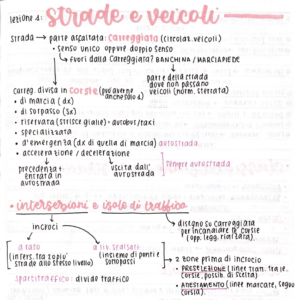 lezione 1:
strade e veicoli
strada → parte asfaltata: carreggiata (circolaz. veicoli)
• senso unico oppure doppio senso
↳ fuori dalla carreggiata? BANCHINA / MARCIAPIEDE
parte della strada
dove non passano
veicoli (norm. sterrata)
carreg. divisa in corsie (può averne anche solo 1)
• di marcia (dx)
• di sorpasso (sx)
• riservata (strisce gialle) → autobus/taxi
• specializzata
• d'emergenza (dx di quella di marcia) autostrada
• accelerazione / decelerazione
precedenza a
entrarà in
autostrada
uscita dall'
autostrada
sempre autostrada
• intersezioni e isole di traffico
incroci
disegno su carreggiata
per incanalare le corsie
(opp. legg. rialzata)
a raso
(inters. tra 2 o più
strade allo stesso livello)
a liv. sfalsati
(insieme di ponti e
sottopassi
spartitraffico: divide traffico
2 zone prima di incrocio
- PRESELEZIONE (linee tratt. tra le
corsie, possib. di scelta)
- ATTESTAMENTO (linee marcate,
corsia)